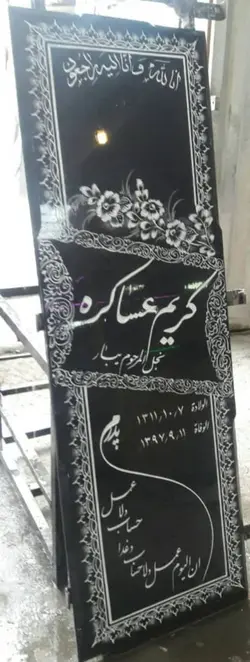 انا لله و انا الیه راجعون
کریم عساکره
نجل المرحوم بیبار
الولادة ۱۳۱۱٫۱۰٫۷
الوفاة ۱۳۹۷٫۹٫۱۱
پدرم
ان الیوم عمل ولا حساب وغدا
حساب ولا عمل